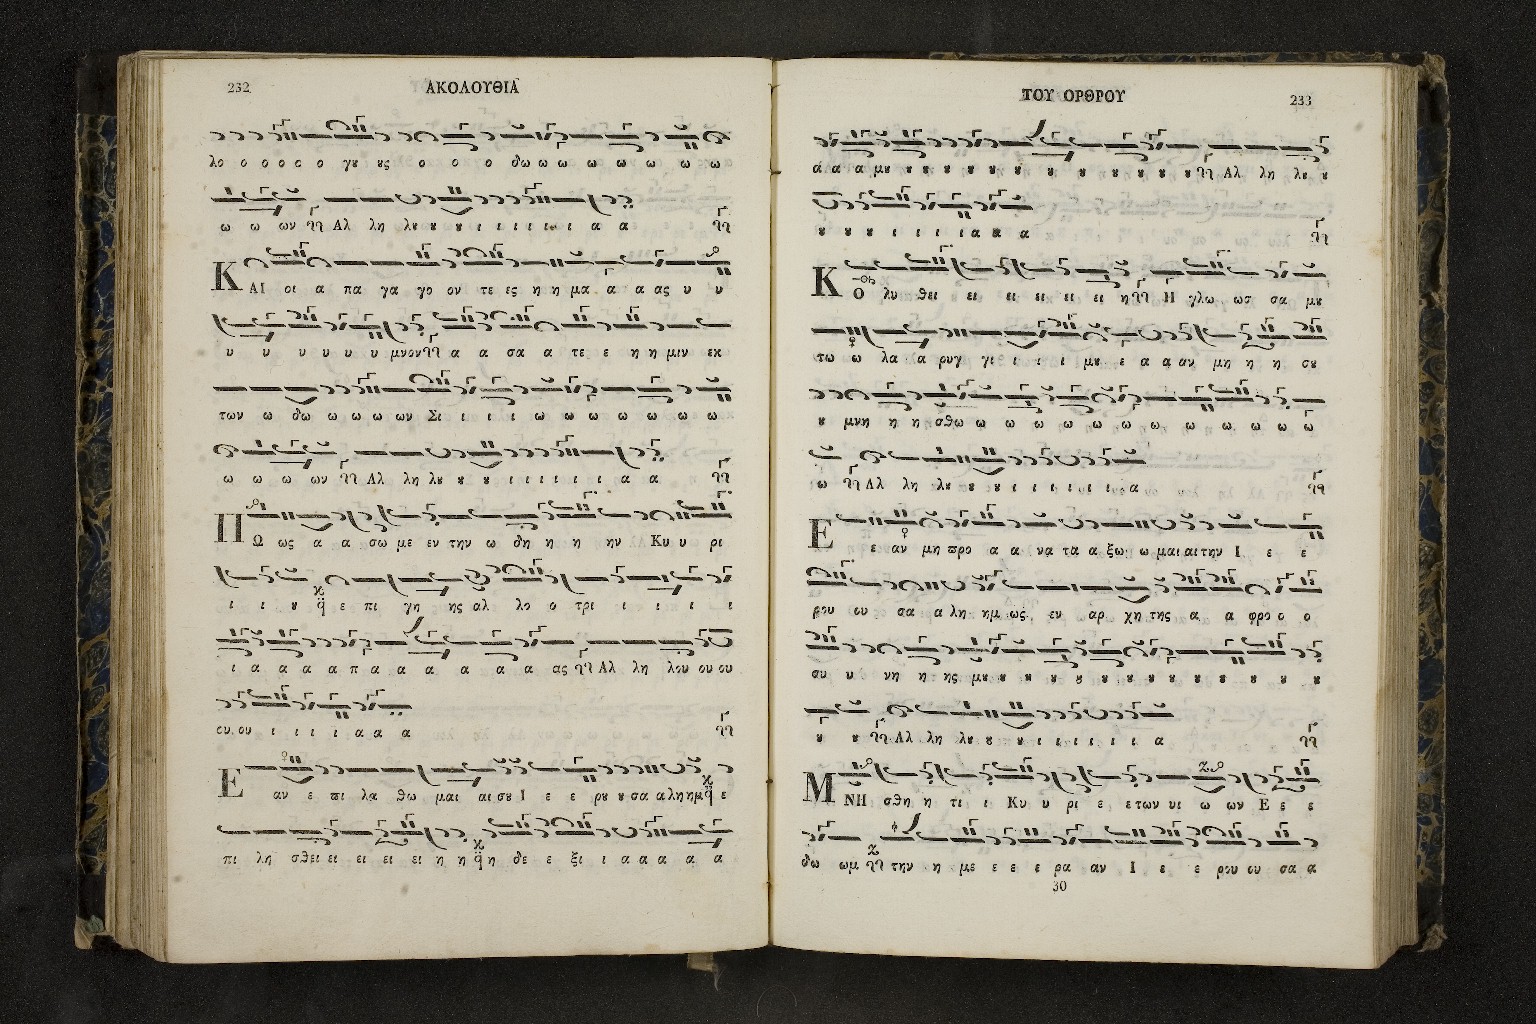 232
ΑΚΟΛΟΥΘΙΑ
λο ο ο ο ο ο γȣ ȣς ο ο ο δω ω ω ω ω ω ω ω
ω ω ων Αλ λη λȣ ȣ ȣ ι ι ι ι ι ι α α
ΚΑΙ οι α πα γα γο ον τε ες η η μα α α ας υ υ
υ υ υ υ υ υ μνον α α σα α τε ε η η μιν εκ
των ω δω ω ω ω ων Σι ι ι ι ω ω ω ω ω ω ω
ω ω ω ων Αλ λη λȣ ȣ ȣ ι ι ι ι ι ι α α
ΠΩ ως α α σω με εν την ω δη η η ην Κυ υ ρι
ι ι ȣ ε πι γη ης αλ λο ο τρι ι ι ι ι
ι α α α α π α α α α α α ας Αλ λη λου ου ου
ου ου ι ι ι ι α α α
Ε αν ε πι λα θω μαι αι σȣ Ι ε ε ρȣ ȣ σα α λη ημ ε
πι λη σθει ει ει ει ει η η η δε ε ξι ι α α α α α
ΤΟΥ ΟΡΘΡΟΥ
233
ά α α μȣ ȣ ȣ ȣ ȣ ȣ ȣ ȣ ȣ ȣ ȣ ȣ ȣ ȣ Αλ λη λȣ ȣ
ȣ ȣ ȣ ι ι ι ι α α α
ΚΟ λυ θει ει ει ει ει ει η Η γλω ωσ σα μȣ
τω ω λα α ρυγ γι ι ι ι μȣ ε α α αν μη η η σȣ
ȣ μνη η η σθω ω ω ω ω ω ω ω ω ω ω ω ω
ω Αλ λη λȣ ȣ ȣ ι ι ι ι ι ι α
Ε ε αν μη προ α α να τα α ξω ω μαι αι την Ι ε ε
ρου ου σα α λη ημ ως εν αρ χη της α α φρο ο ο
συ υ νη η ης μȣ ȣ ȣ ȣ ȣ ȣ ȣ ȣ ȣ ȣ ȣ ȣ ȣ
ȣ ȣ Αλ λη λȣ ȣ ȣ ι ι ι ι ι ι α
ΜΝΗ σθη η τι ι Κυ υ ρι ε ε των υι ω ων Ε ε ε
δω ωμ την η με ε ε ε ρα αν Ι ε ε ρου ου σα α
30